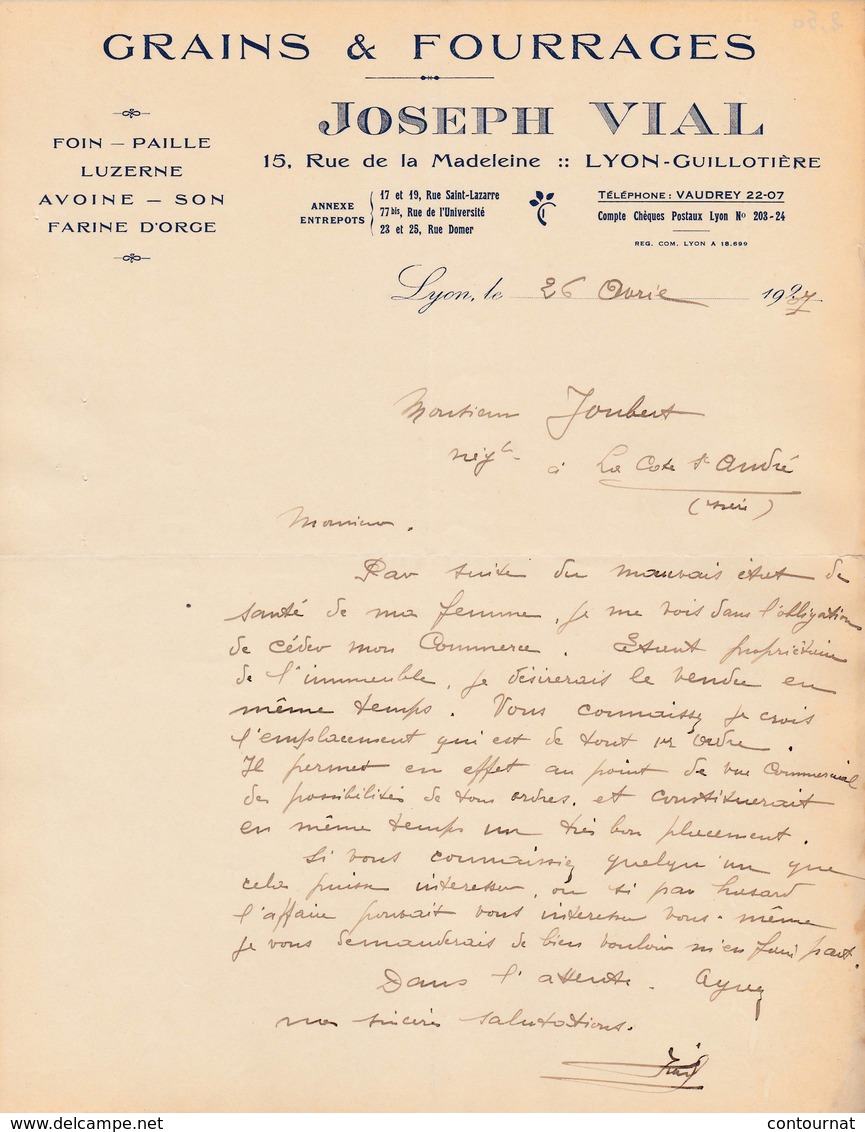 GRAINS & FOURRAGES
JOSEPH VIAL
15, Rue de la Madeleine :: LYON-GUILLOTIÈRE
FOIN — PAILLE
LUZERNE
AVOINE — SON
FARINE D'ORGE
ANNEXE
ENTREPOTS
17 et 19, Rue Saint-Lazarre
77bis, Rue de l'Université
23 et 25, Rue Domer
TÉLÉPHONE : VAUDREY 22-07
Compte Chèques Postaux Lyon No 203-24
REG. COM. LYON A 18.699
Lyon, le 26 Avril 1927
Monsieur Joubert
négt à La Cote St André
(Isère)
Monsieur.
Par suite du mauvais état de
santé de ma femme, je me vois dans l'obligation
de céder mon Commerce. Etant propriétaire
de l'immeuble, je désirerais le vendre en
même temps. Vous connaissez je crois
l'emplacement qui est de tout 1er Ordre.
Il permet en effet au point de vue Commercial
des possibilités de tous ordres, et constituerait
en même temps un très bon placement.
Si vous connaissiez quelqu'un que
cela puisse interesser, ou si par hasard
l'affaire pouvait vous interesser vous-même
je vous demanderais de bien vouloir m'en faire part.
Dans l'attente. Agréez
mes sincères salutations.
Vial
delcampe.net
contournat